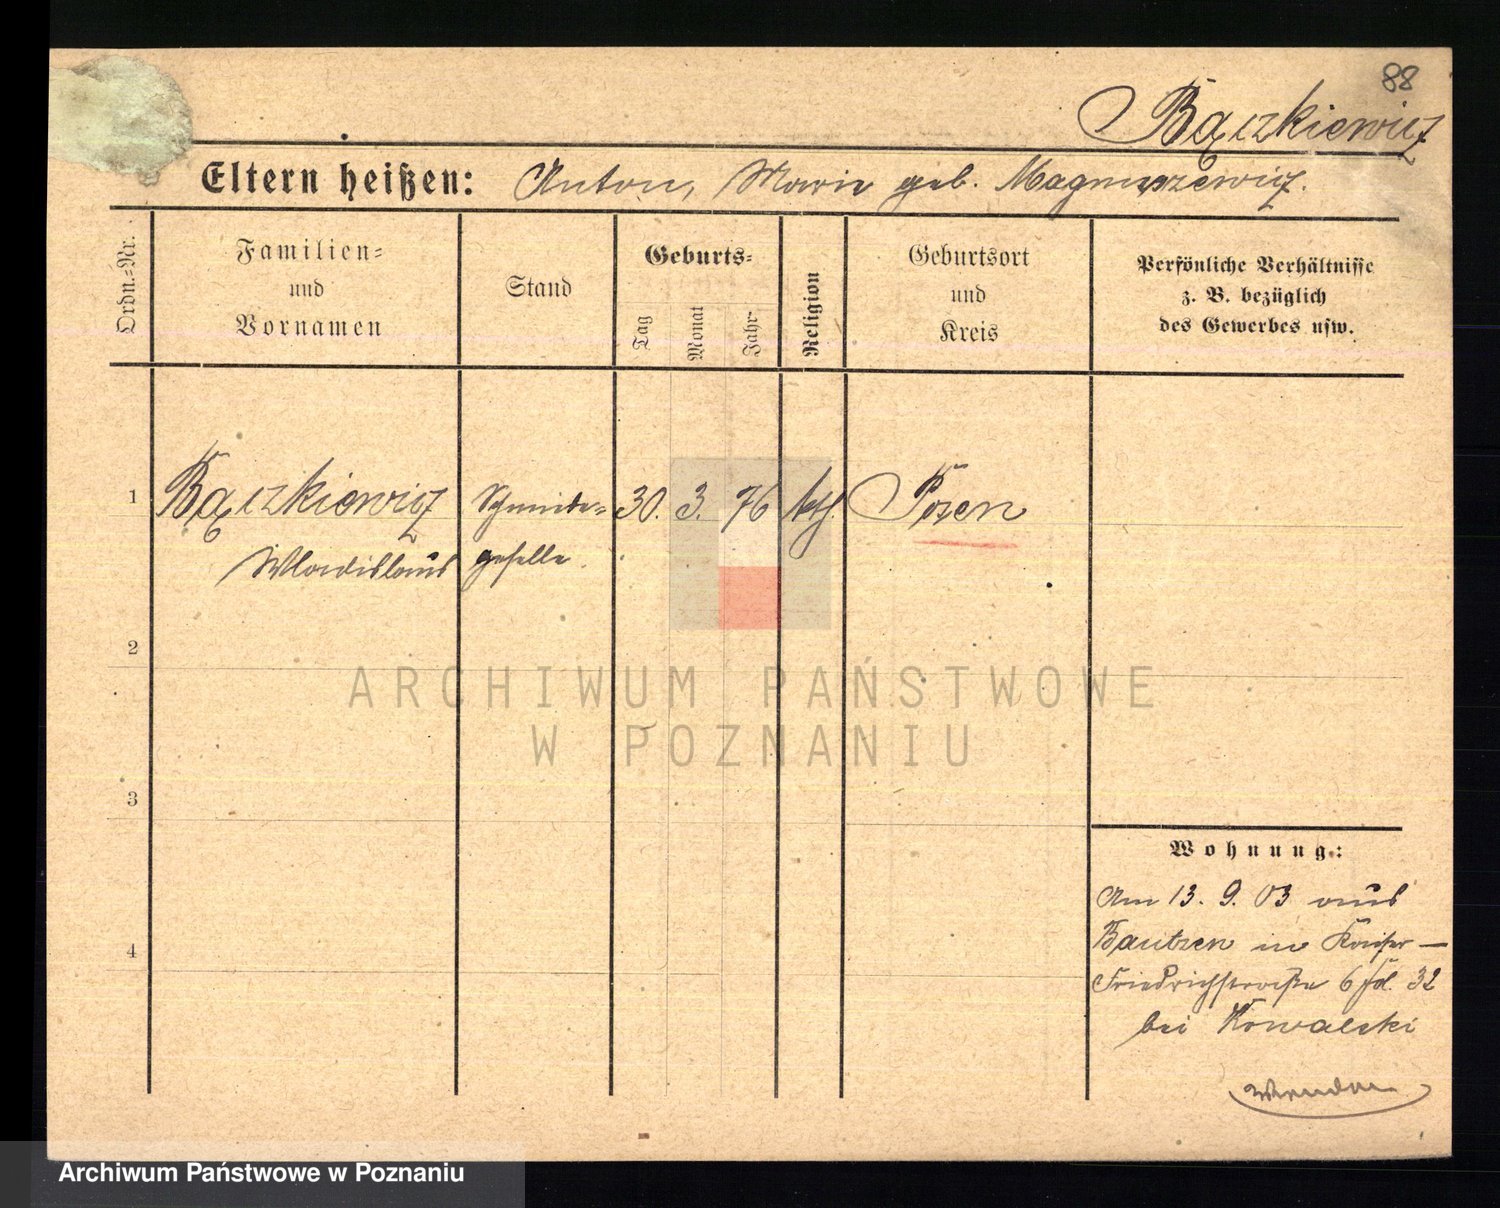 88
Bączkiewicz
Eltern heißen: Anton, Marie geb. Magnuszewicz.
Ordn.-Nr.
Familien-
und
Vornamen
Stand
Geburts-
Tag
Monat
Jahr
Religion
Geburtsort
und
Kreis
Persönliche Verhältnisse
z. B. bezüglich
des Gewerbes usw.
1 Bączkiewicz Schmiede- 30. 3. 76 kath. Posen
Wladislaus geselle.
2
3
4
Wohnung:
Am 13. 9. 03 aus
Bautzen in Kaiser-
Friedrichstraße 6 fd. 32
bei Kowalski
ARCHIWUM PAŃSTWOWE
W POZNANIU
Archiwum Państwowe w Poznaniu